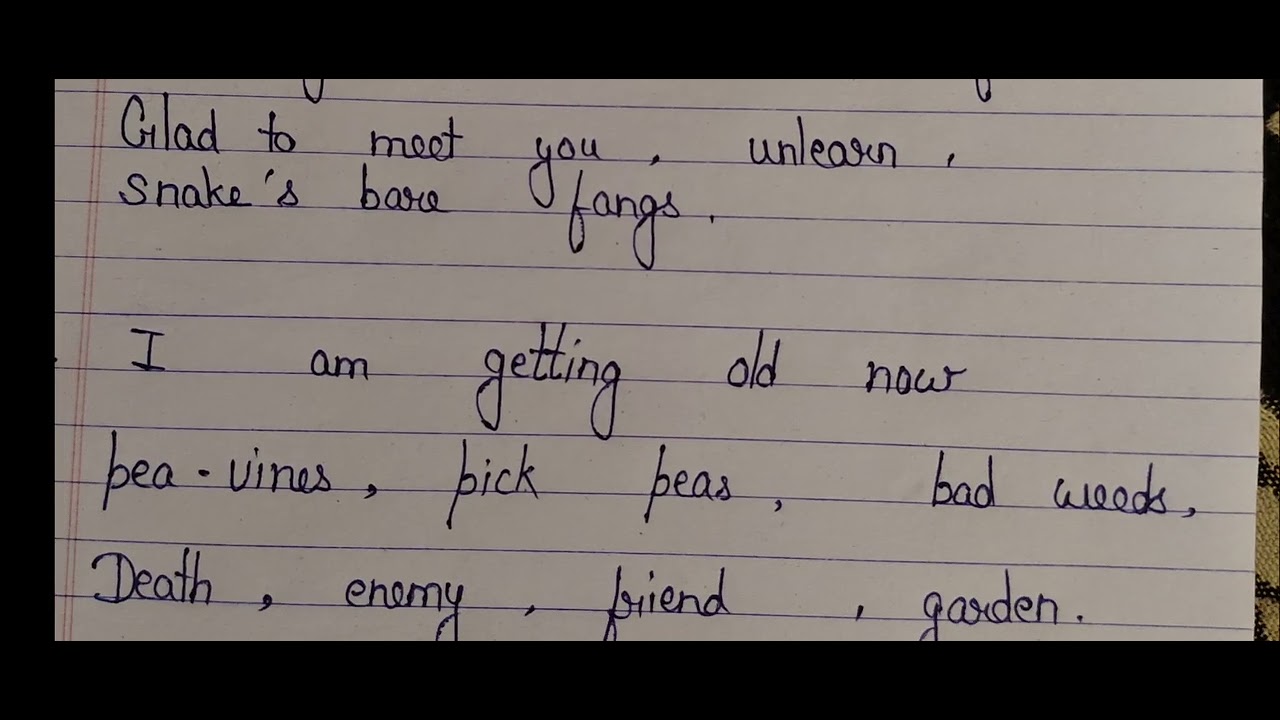 Glad to meet you, unlearn,
snake's bare fangs.
I am getting old now
pea-vines, pick peas, bad weeds,
Death, enemy, friend, garden.